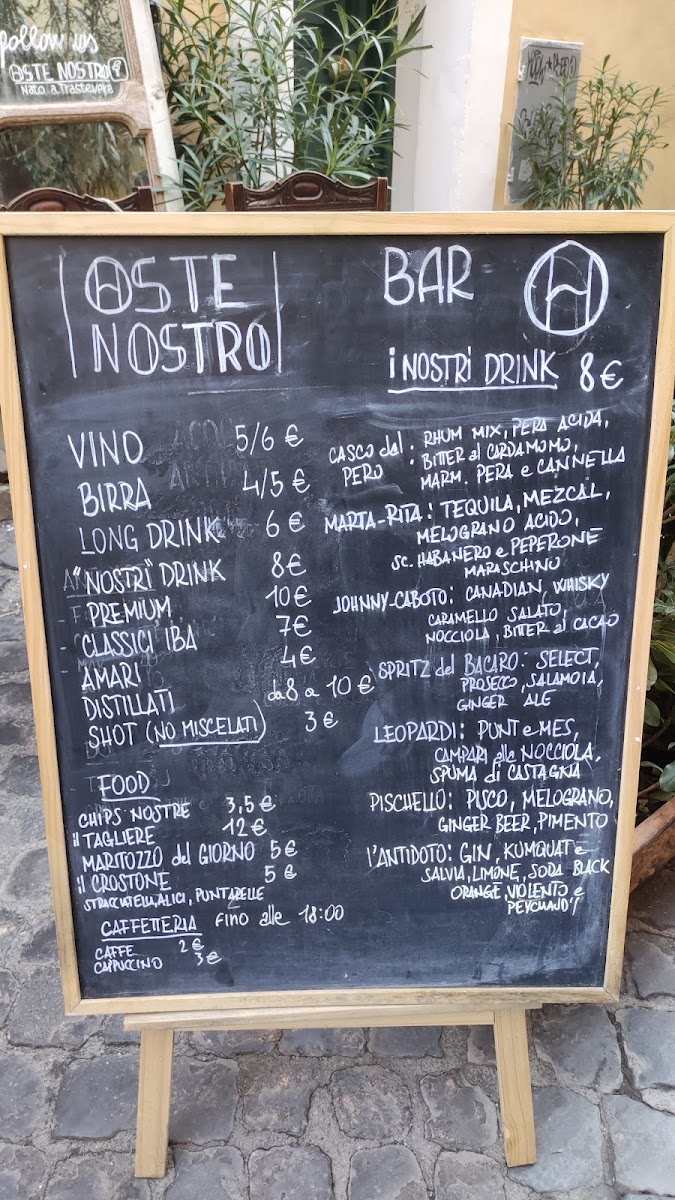 follow us
OSTE NOSTRO
Nato a Trastevere
OSTE
NOSTRO
VINO 5/6 €
BIRRA 4/5 €
LONG DRINK 6 €
"NOSTRI" DRINK 8€
PREMIUM 10€
CLASSICI IBA 7€
AMARI 4€
DISTILLATI da 8 a 10 €
SHOT (NO MISCELATI) 3€
FOOD
CHIPS NOSTRE 3,5€
il TAGLIERE 12€
MARITOZZO del GIORNO 5€
il CROSTONE 5€
STRACCIATELLA, ALICI, PUNTARELLE
CAFFETTERIA FINO alle 18:00
CAFFE 2€
CAPPUCCINO 3€
BAR
i NOSTRI DRINK 8€
CASCO dal PERO : RHUM MIX, PERA ACIDA,
BITTER al CARDAMOMO,
MARM. PERA e CANNELLA
MARTA-RITA: TEQUILA, MEZCAL,
MELOGRANO ACIDO,
SC. HABANERO e PEPERONE
MARASCHINO
JOHNNY-CABOTO: CANADIAN, WHISKY
CARAMELLO SALATO,
NOCCIOLA, BITTER al CACAO
SPRITZ del BACARO: SELECT,
PROSECCO, SALAMOIA,
GINGER ALE
LEOPARDI: PUNT e MES,
CAMPARI alla NOCCIOLA,
SPUMA di CASTAGNA
PISCHELLO: PISCO, MELOGRANO,
GINGER BEER, PIMENTO
l'ANTIDOTO: GIN, KUMQUAT e
SALVIA, LIMONE, SODA BLACK
ORANGE, VIOLENTO e
PEYCHAUD'S